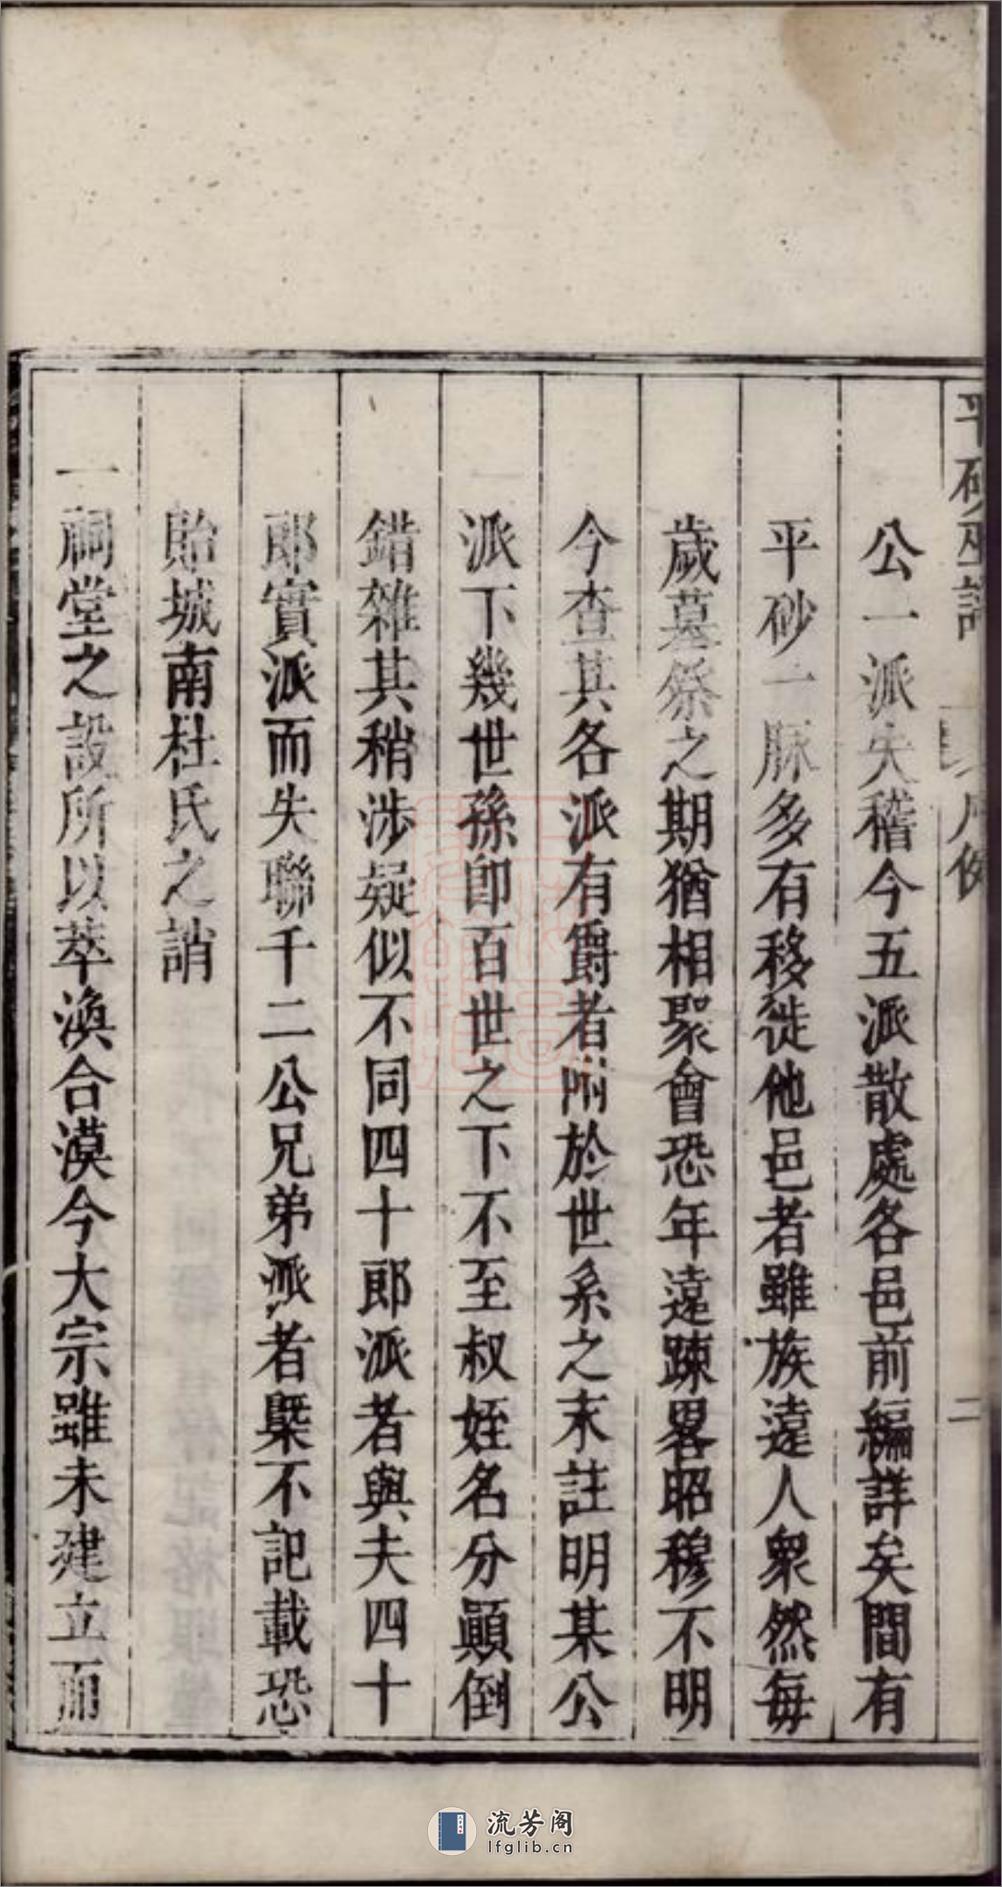 公一派失稽今五派散處各邑前編詳矣間有
平砂一脉多有移徙他邑者雖族遠人衆然每
歲墓祭之期猶相聚會恐年遠踈畧昭穆不明
今查其各派有爵者附於世系之末註明某公
派下幾世孫卽百世之下不至叔姪名分顚倒
錯雜其稍涉疑似不同四十郎派者與夫四十
郎實派而失聯千二公兄弟派者槩不記載恐
貽城南杜氏之誚
一祠堂之設所以萃渙合漠今大宗雖未建立而
流芳阁
lfglib.cn